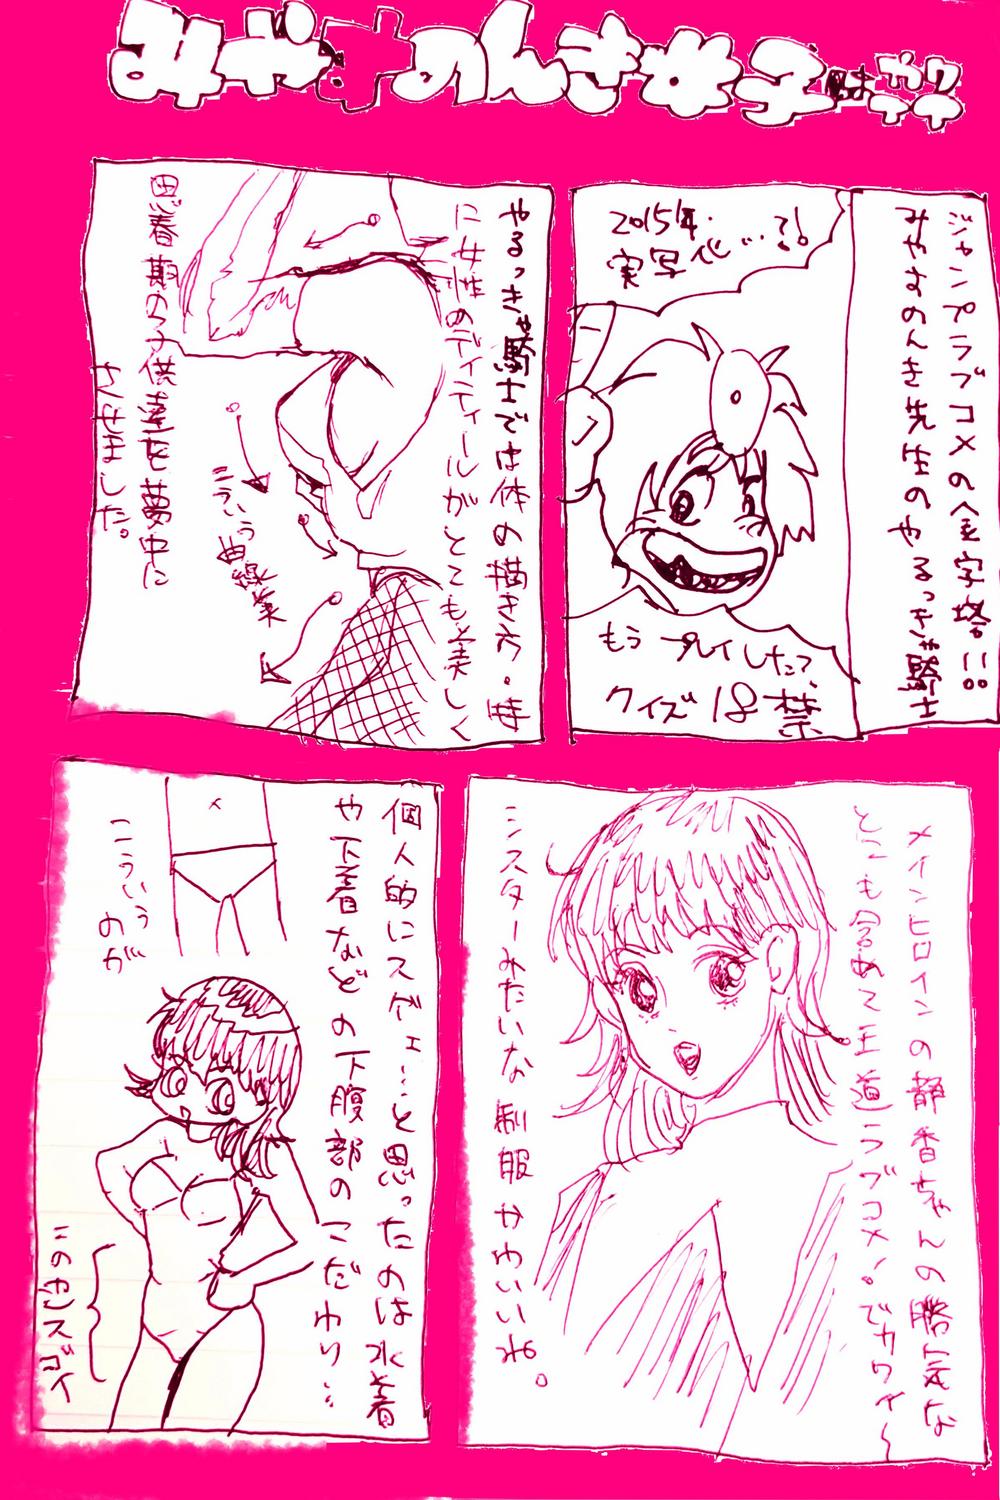 みやすのんき女子
ジャンプラブコメの金字塔!!
みやすのんき先生のやるっきゃ騎士
2015年
実写化…?!
もうプレイした?
クイズ18禁
やるっきゃ騎士では体の描き方・特
に女性のディティールがとても美しく
こういう曲線美
思春期の子供達を夢中に
させました。
メインヒロインの静香ちゃんの勝気な
とこも含めて王道ラブコメ!でカワイ〜
シスターみたいな制服かわいいね。
個人的にスゲェ…と思ったのは水着
や下着などの下腹部のこだわり…
こういう
のが
スゴイ